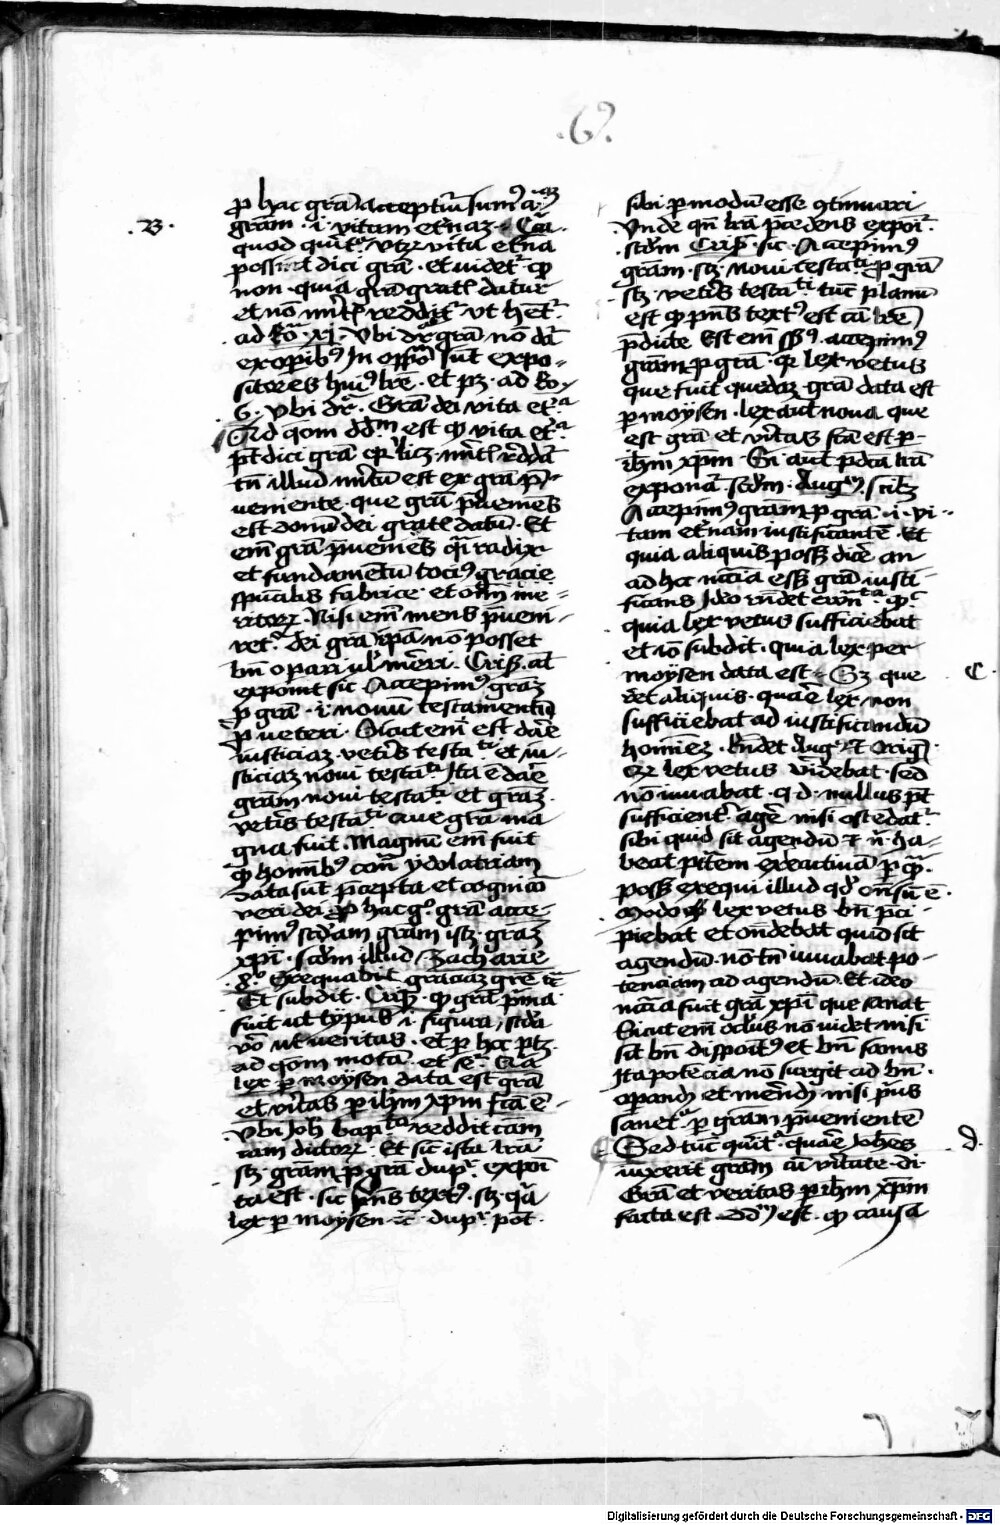 .6.
.B.
ꝓ hac grā accepturi sumꝰ aliqua
grām .i. vitam et̄naꝫ Circa
quod querit᷑ vtrū vita et̄na
possit dici grā . et videt᷑ ꝙ
non . quia grā gratis datur
et nō meritis reddit᷑ . vt het᷑
ad Ro . xj . Vbi dr̄ grā nō dat᷑
ex operibꝰ In oppositū sūt expo-
sitores huiꝰ lr̄e . et pꝫ . ad Ro
6 . vbi dr̄ . Grā dei vita et̄a
Ad qōm dd̄m est ꝙ vita et̄a
pt̄ dici grā qꝛ licꝫ mr̄itis reddat᷑
tn̄ illud mr̄itū est ex grā p̄-
ueniente . que grā p̄ueniens
est donū dei gratis datū . Et
em̄ grā p̄ueniens q̄si radix
et fundamētū tociꝰ gracie
spūalis fabrice . et om̄ me-
ritoꝝ . Nisi em̄ mens p̄ueni-
ret᷑ dei grā ip̄a nō posset
bn̄ operari ul̓ mereri . Crisꝰ aūt
exponit sic Accepimꝰ graꝫ
ꝓ grā . i . nouū testamentū
ꝓ ueteri . Sicut em̄ est dare
iusticiaꝫ veteris testati et iu-
sticiaꝫ noui testati Ita ē dare
grām noui testati et graꝫ
veteris testati que grā ma
gna fuit . Magnū em̄ fuit
ꝙ hominibꝰ contra ydolatriam
data sūt p̄cepta et cognicō
veri dei ꝓ hac gͦ grā acce-
pimꝰ scdam grām istꝫ graꝫ
xp̄i . scdm illud Zacharie
4º Exequabit graciaꝫ gre ꝛc
Et subdit . Crisꝰ ꝙ grā p̄ma
fuit ut typus i . figura , scda
vō ut veritas . et ꝑ hoc ptꝫ
ad qōm motā . et seqͬ Quia
lex ꝑ moysen data est grā
et vītas ꝑ ih̄m xp̄m fcā ē
Vbi Joh̄ bapta reddit cām
cam dictoꝝ . Et sic ista lrā
scꝫ grām ꝓ grā dupͬ expōi
ta est . sic p̄ns textꝰ . scꝫ quia
lex ꝑ moysen ꝛc̄ dupͬ pōt
sibi ꝑ modū esse 9tinuari
Vnde qn̄ lrā p̄cedens expoit᷑
scdm Crisꝰ . sic . Accepimꝰ
grām . scꝫ noui testati ꝓ grā
scꝫ veteris testati tūc planū
est ꝙ p̄ns textꝰ est cā lr̄e
p̄dicte Est em̄ sēsꝰ . accepimꝰ
grām ꝓ grā . qꝛ lex vetus
que fuit quedaꝫ grā data est
ꝑ moysen . lex aūt noua que
est grā et vītas fcā est ꝑ
ih̄m xp̄m . Si aūt p̄dcā lrā
exponat᷑ scdm Augᵐ . scilicꝫ
Accepimꝰ grām ꝓ grā . i . vi-
tam et̄nam iustificantē . Et
quia aliquis possꝫ dicere an
ad hoc nccia essꝫ grā iusti-
ficans Ideo rn̄det ewn̄sta . ꝙ sic
quia lex vetus sufficiebat
et iō subdit . quia lex per
moysen data est . Sꝫ que
ret aliquis . quare lex non
C
sufficiebat ad iustificandū
hominēꝫ . Rn̄det Augꝰ et Orig̓
Qꝛ lex vetus videbat . sed
nō iuuabat . q . d . nullus pt̄
sufficient᷑ agere nisi ostēdat᷑
sibi quid sit agendū et n̄ ha-
beat potentem executiuā ꝑ quā
possꝫ exequi illud qd̓ on̄sū ē .
Modo lex vetus bn̄ p̄ci-
piebat et on̄debat quid sit
agendū . nō tn̄ iuuabat po-
tenciam ad agendū . Et ideo
nccia fuit grā xp̄i que sanat
Sicut em̄ oclus nō videt nisi
sit bn̄ dispositꝰ et bn̄ sanus
Ita potēcia nō surgit ad bn̄
operandū et merendū nisi prius
sanet᷑ . ꝑ grām p̄uenientē
Sed tūc querit᷑ . quare Johēs
D.
iunxerit grām cū veritate . di.
Grā et veritas ꝑ ih̄m xp̄m
facta est . Dd̄m est . ꝙ causa
Digitalisierung gefördert durch die Deutsche Forschungsgemeinschaft - DFG